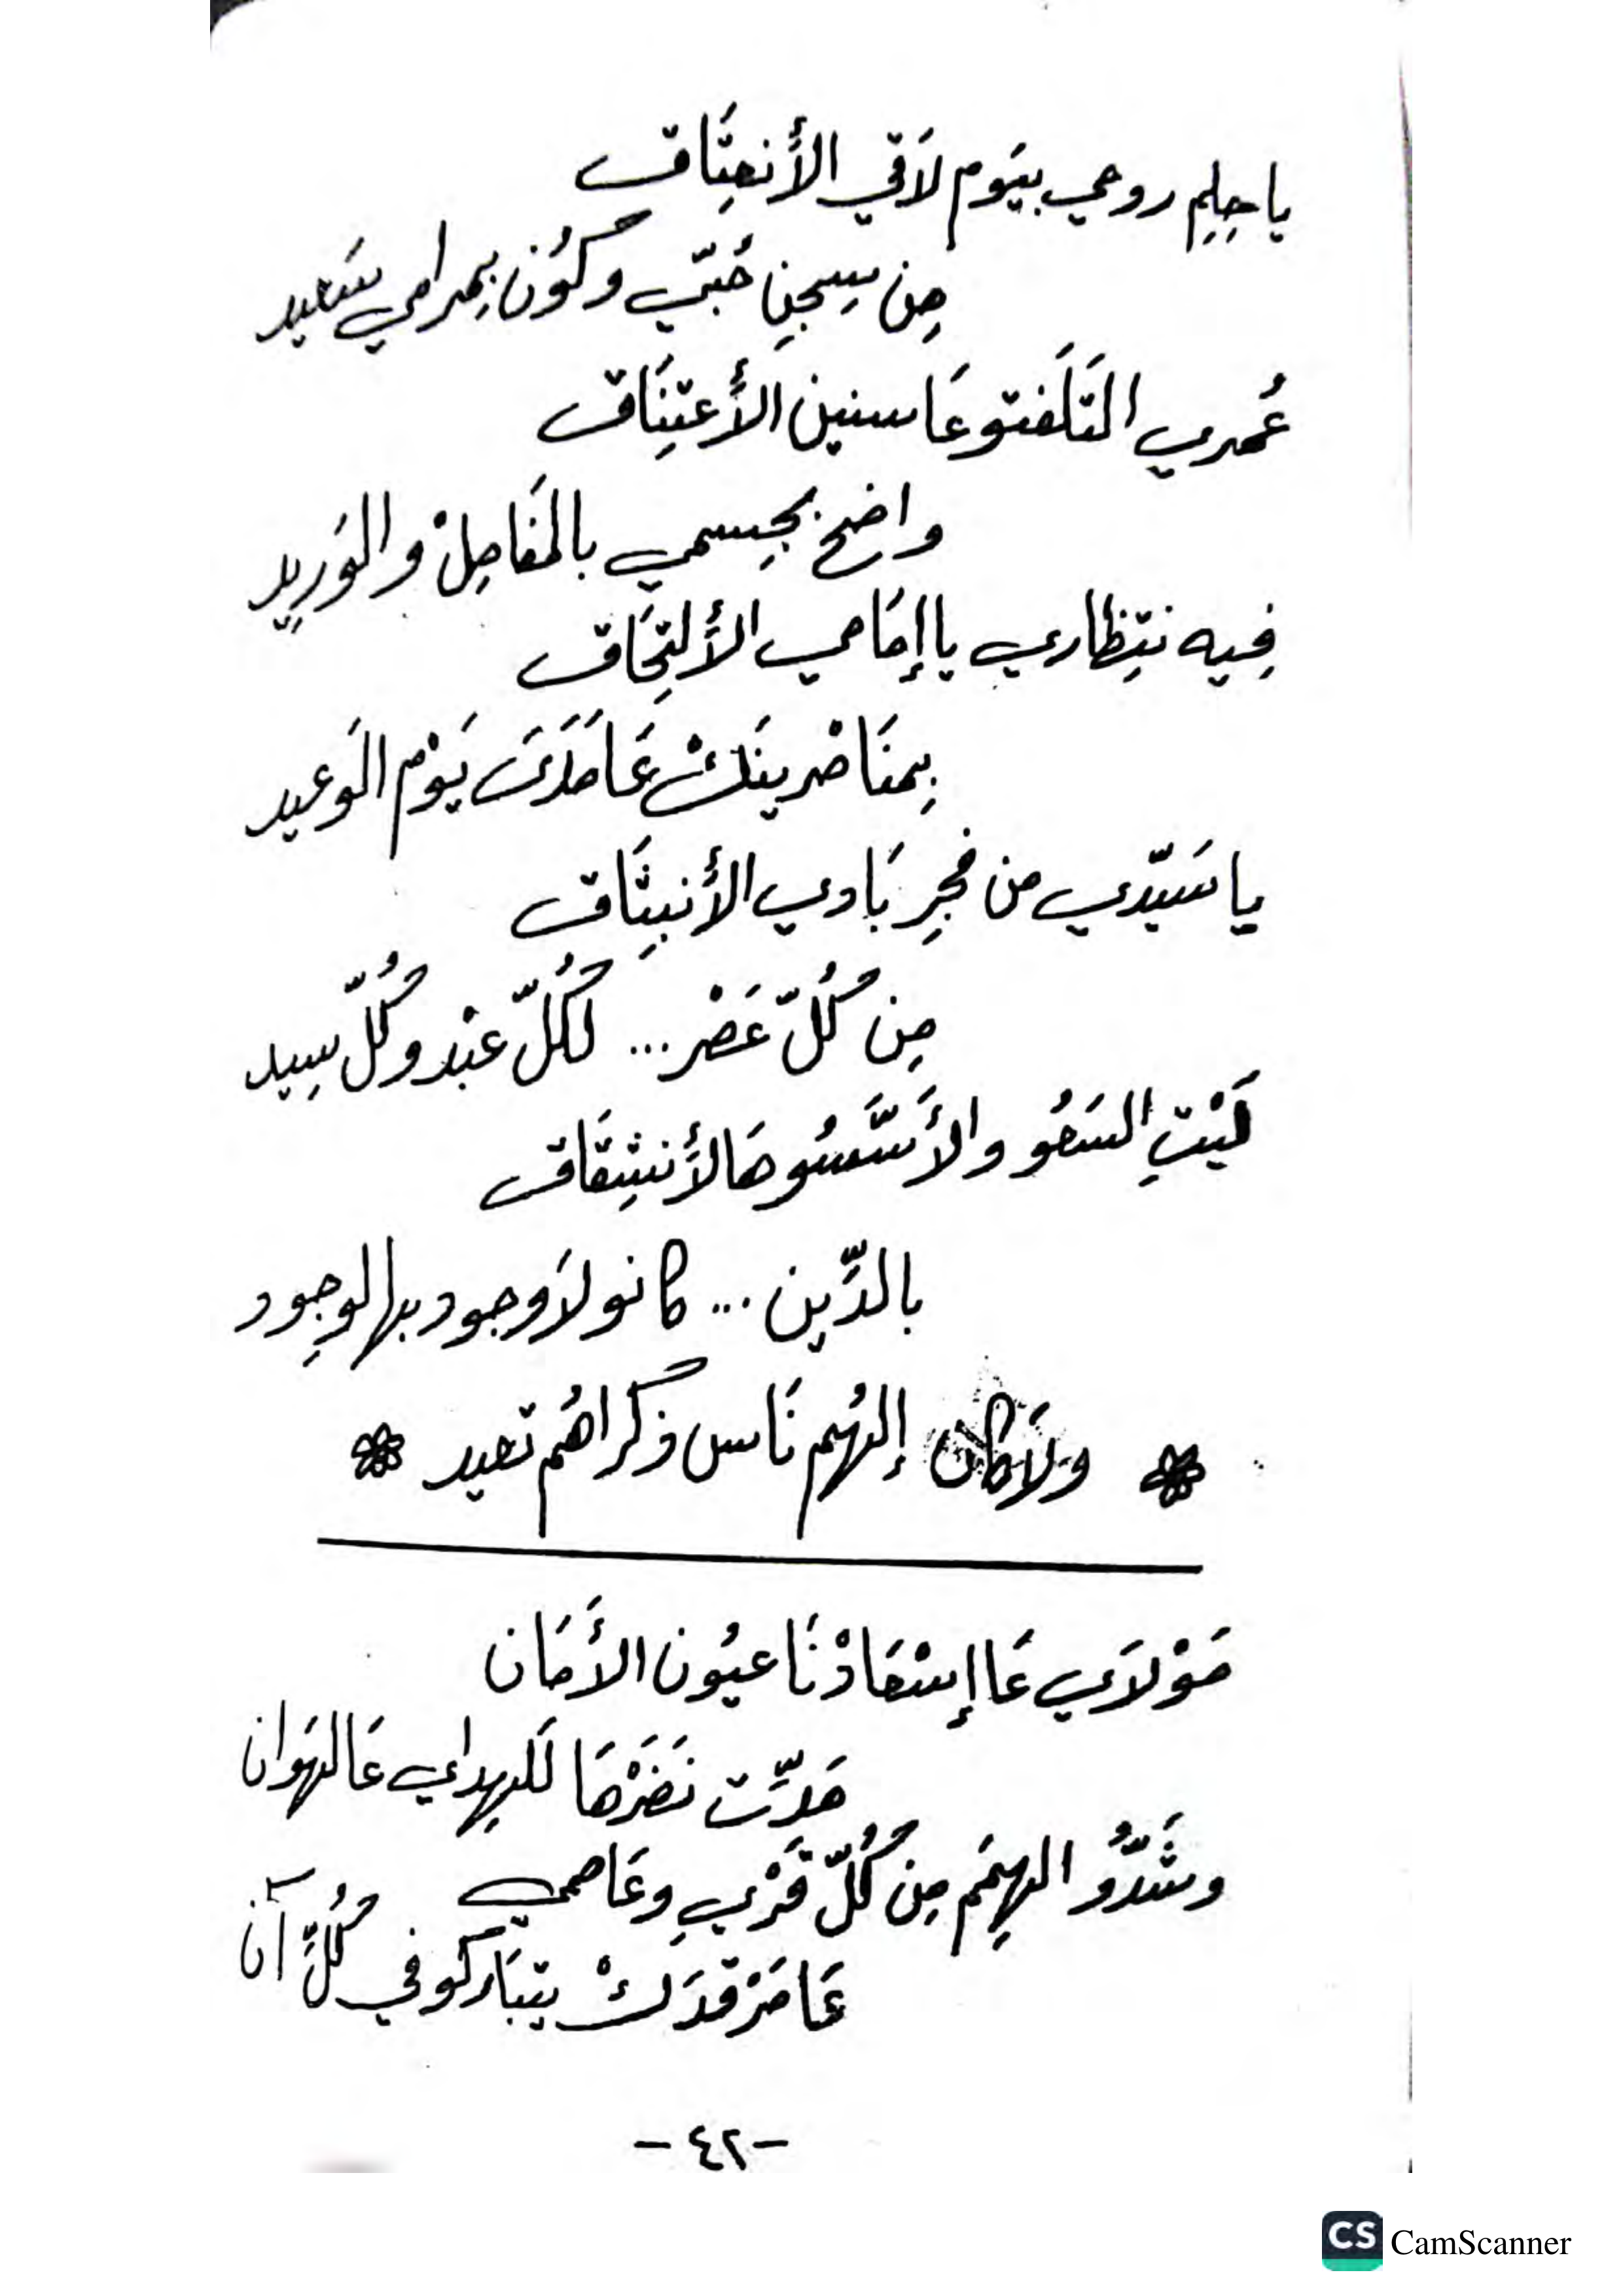 يا حِلِم روحي بيَوم لاَقي الأنعِتَاق
مِن سِجنِ حُبّي وكُوُن بمرامي سَعيد
عُمري التَلَفتو عَا سنين الأَعتِنَاق
واضح بجِسمي بالمَفَاصِلْ والوَرِيد
فِيه نتِظاري يا إمَامي الألتِحَاق
بِمنَاصْرينَكْ عَا مَدَىَ يَوْم الوَعيد
يا سَيّدي من فجرِ بَادي الأنبِثَاق
مِن كُلّ عَصْر... لكُلّ عبْد وكُلّ سِيد
لَيْتِ السَعُو والأَسَّسُو هَالأَنشِقَاق
بالدِّين... كانو لاَ وجود بها لوجِود
ولاَ كان إلهُم نَاس ذكراهُم تعيد
مَوْلاَي عَا إسْعَادْنَا عيُون الأَمَان
مَدِّت نَضَرْهَا لَليِهداي عَالهَوان
وشَدُّو الهِمَم مِن كُلّ قَرْيِ وعَاصمي
عَا مَرْقدَكْ يتبَاركو في كُلِّ آن
-٤٢-
CS CamScanner